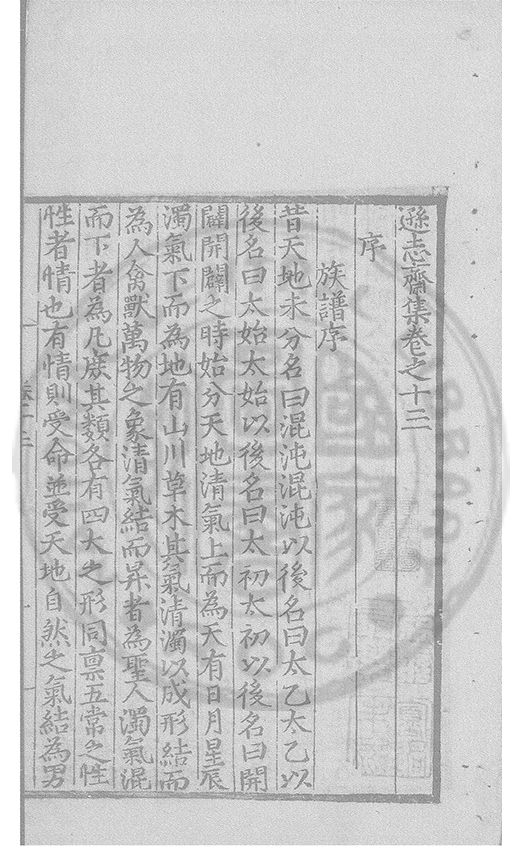 遜志齋集卷之十三
序
族譜序
昔天地未分名曰混沌混沌以後名曰太乙太乙以
後名曰太始太始以後名曰太初太初以後名曰開
闢開闢之時始分天地清氣上而為天有日月星辰
濁氣下而為地有山川草木其氣清濁以成形結而
為人禽獸萬物之象清氣結而昇者為聖人濁氣混
而下者為凡庶其類各有四大之形同禀五常之性
性者情也有情則受命並受天地自然之氣結為男